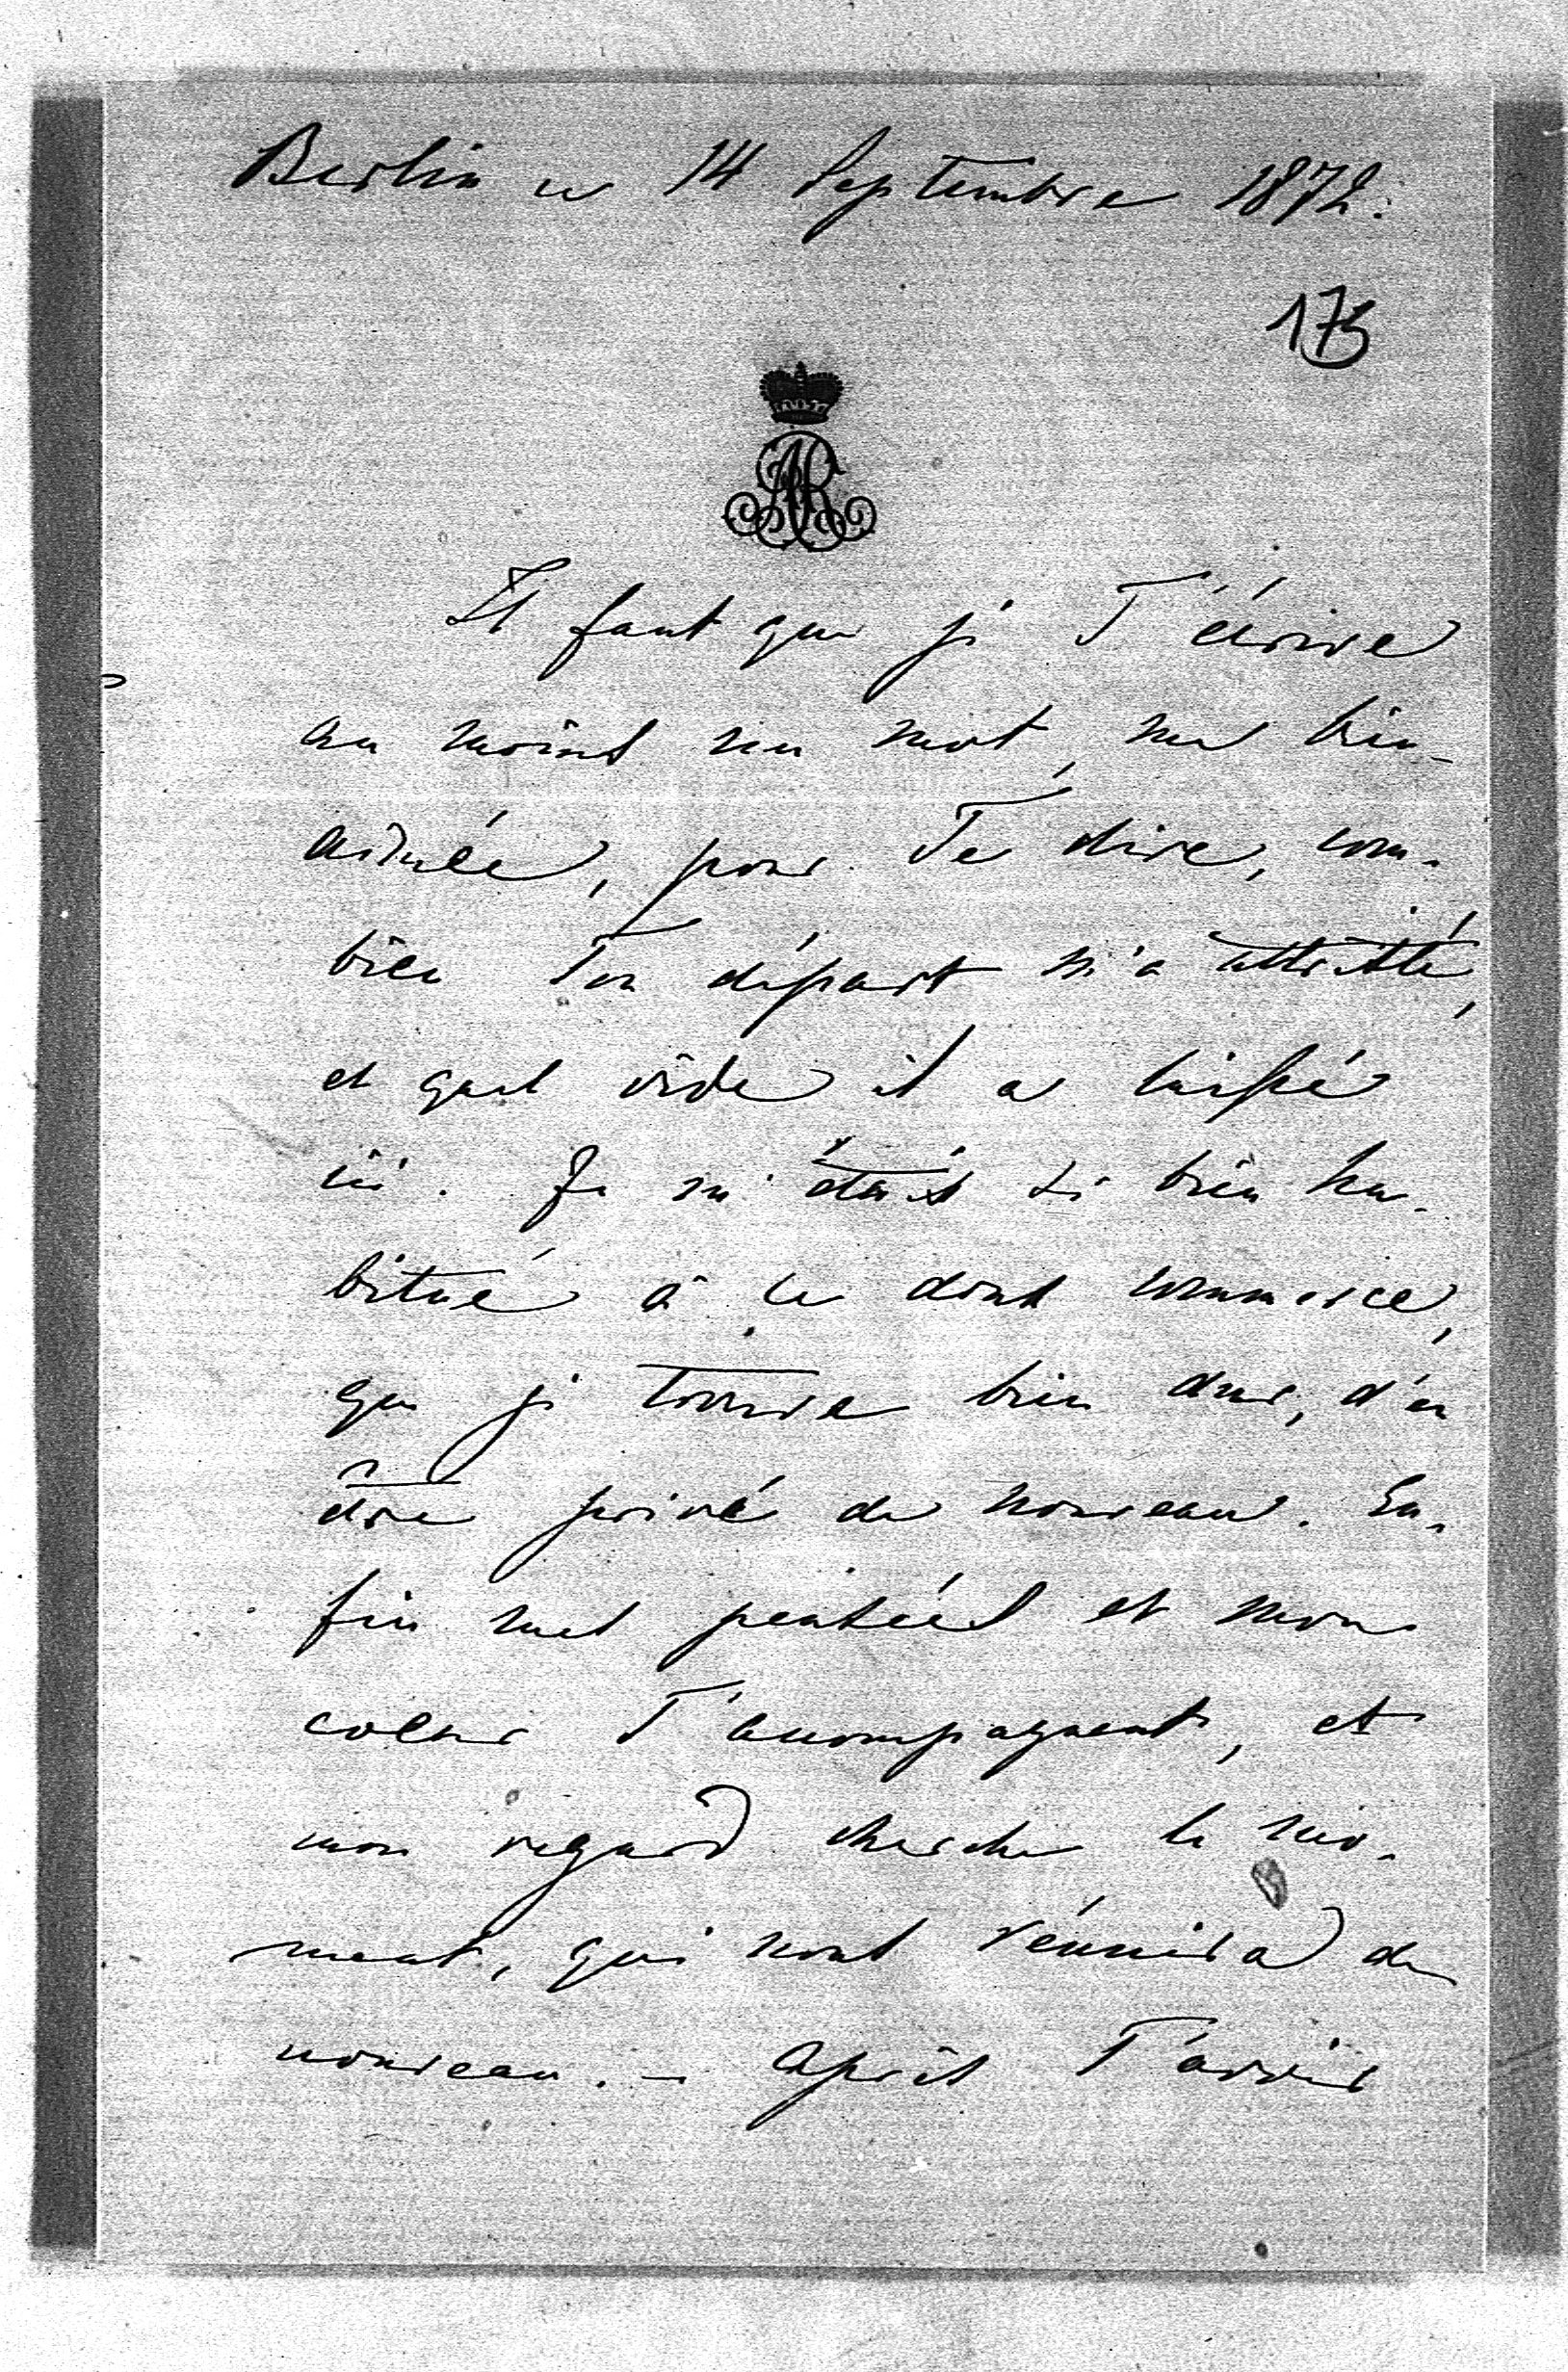 Berlin ce 14 Septembre 1872.
173
AR
Il faut que je T'écrive
au moins un mot, ma bien-
aimée, pour Te dire, com-
bien Ton départ m'a attristé,
et quel vide il a laissé
ici. Je m'étais si bien ha-
bitué à ce doux commerce,
que je trouve bien dur, d'en
être privé de nouveau. En-
fin mes pensées et mon
coeur T'accompagnent, et
mon regard cherche le mo-
ment, qui nous réunira de
nouveau. - Après T'avoir